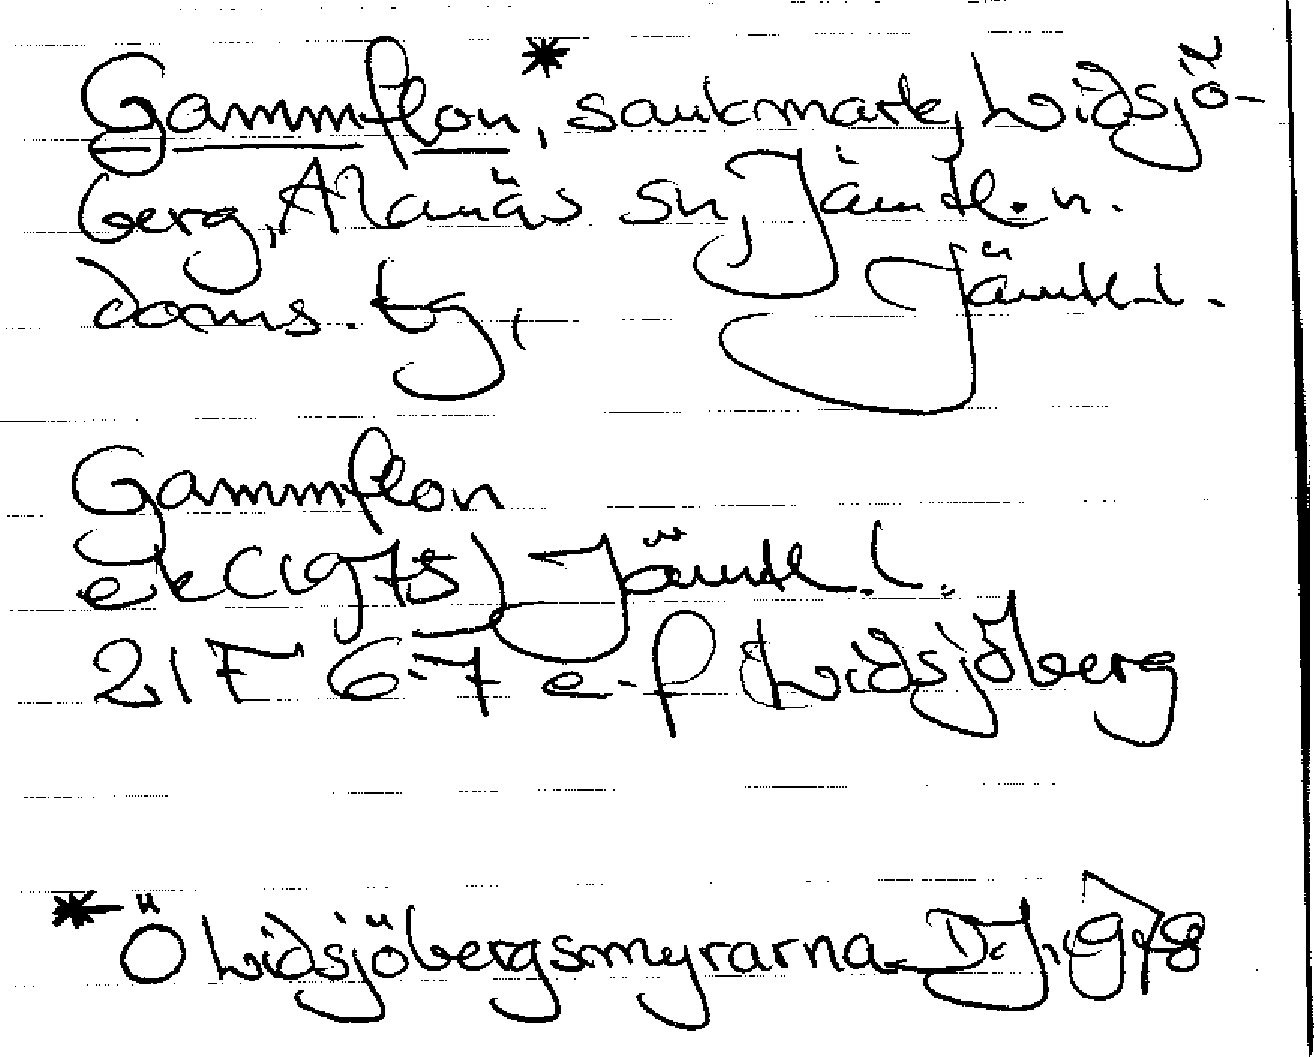 Gammflon*, sankmark, Lidsjö-
berg, Alanäs sn, Jämtl. n.
doms. tg, Jämtl. l.
Gammflon
ek (1975) Jämtl. l.
21F 6-7 e-f Lidsjöberg
* Ö Lidsjöbergsmyrarna. D.J. 1978